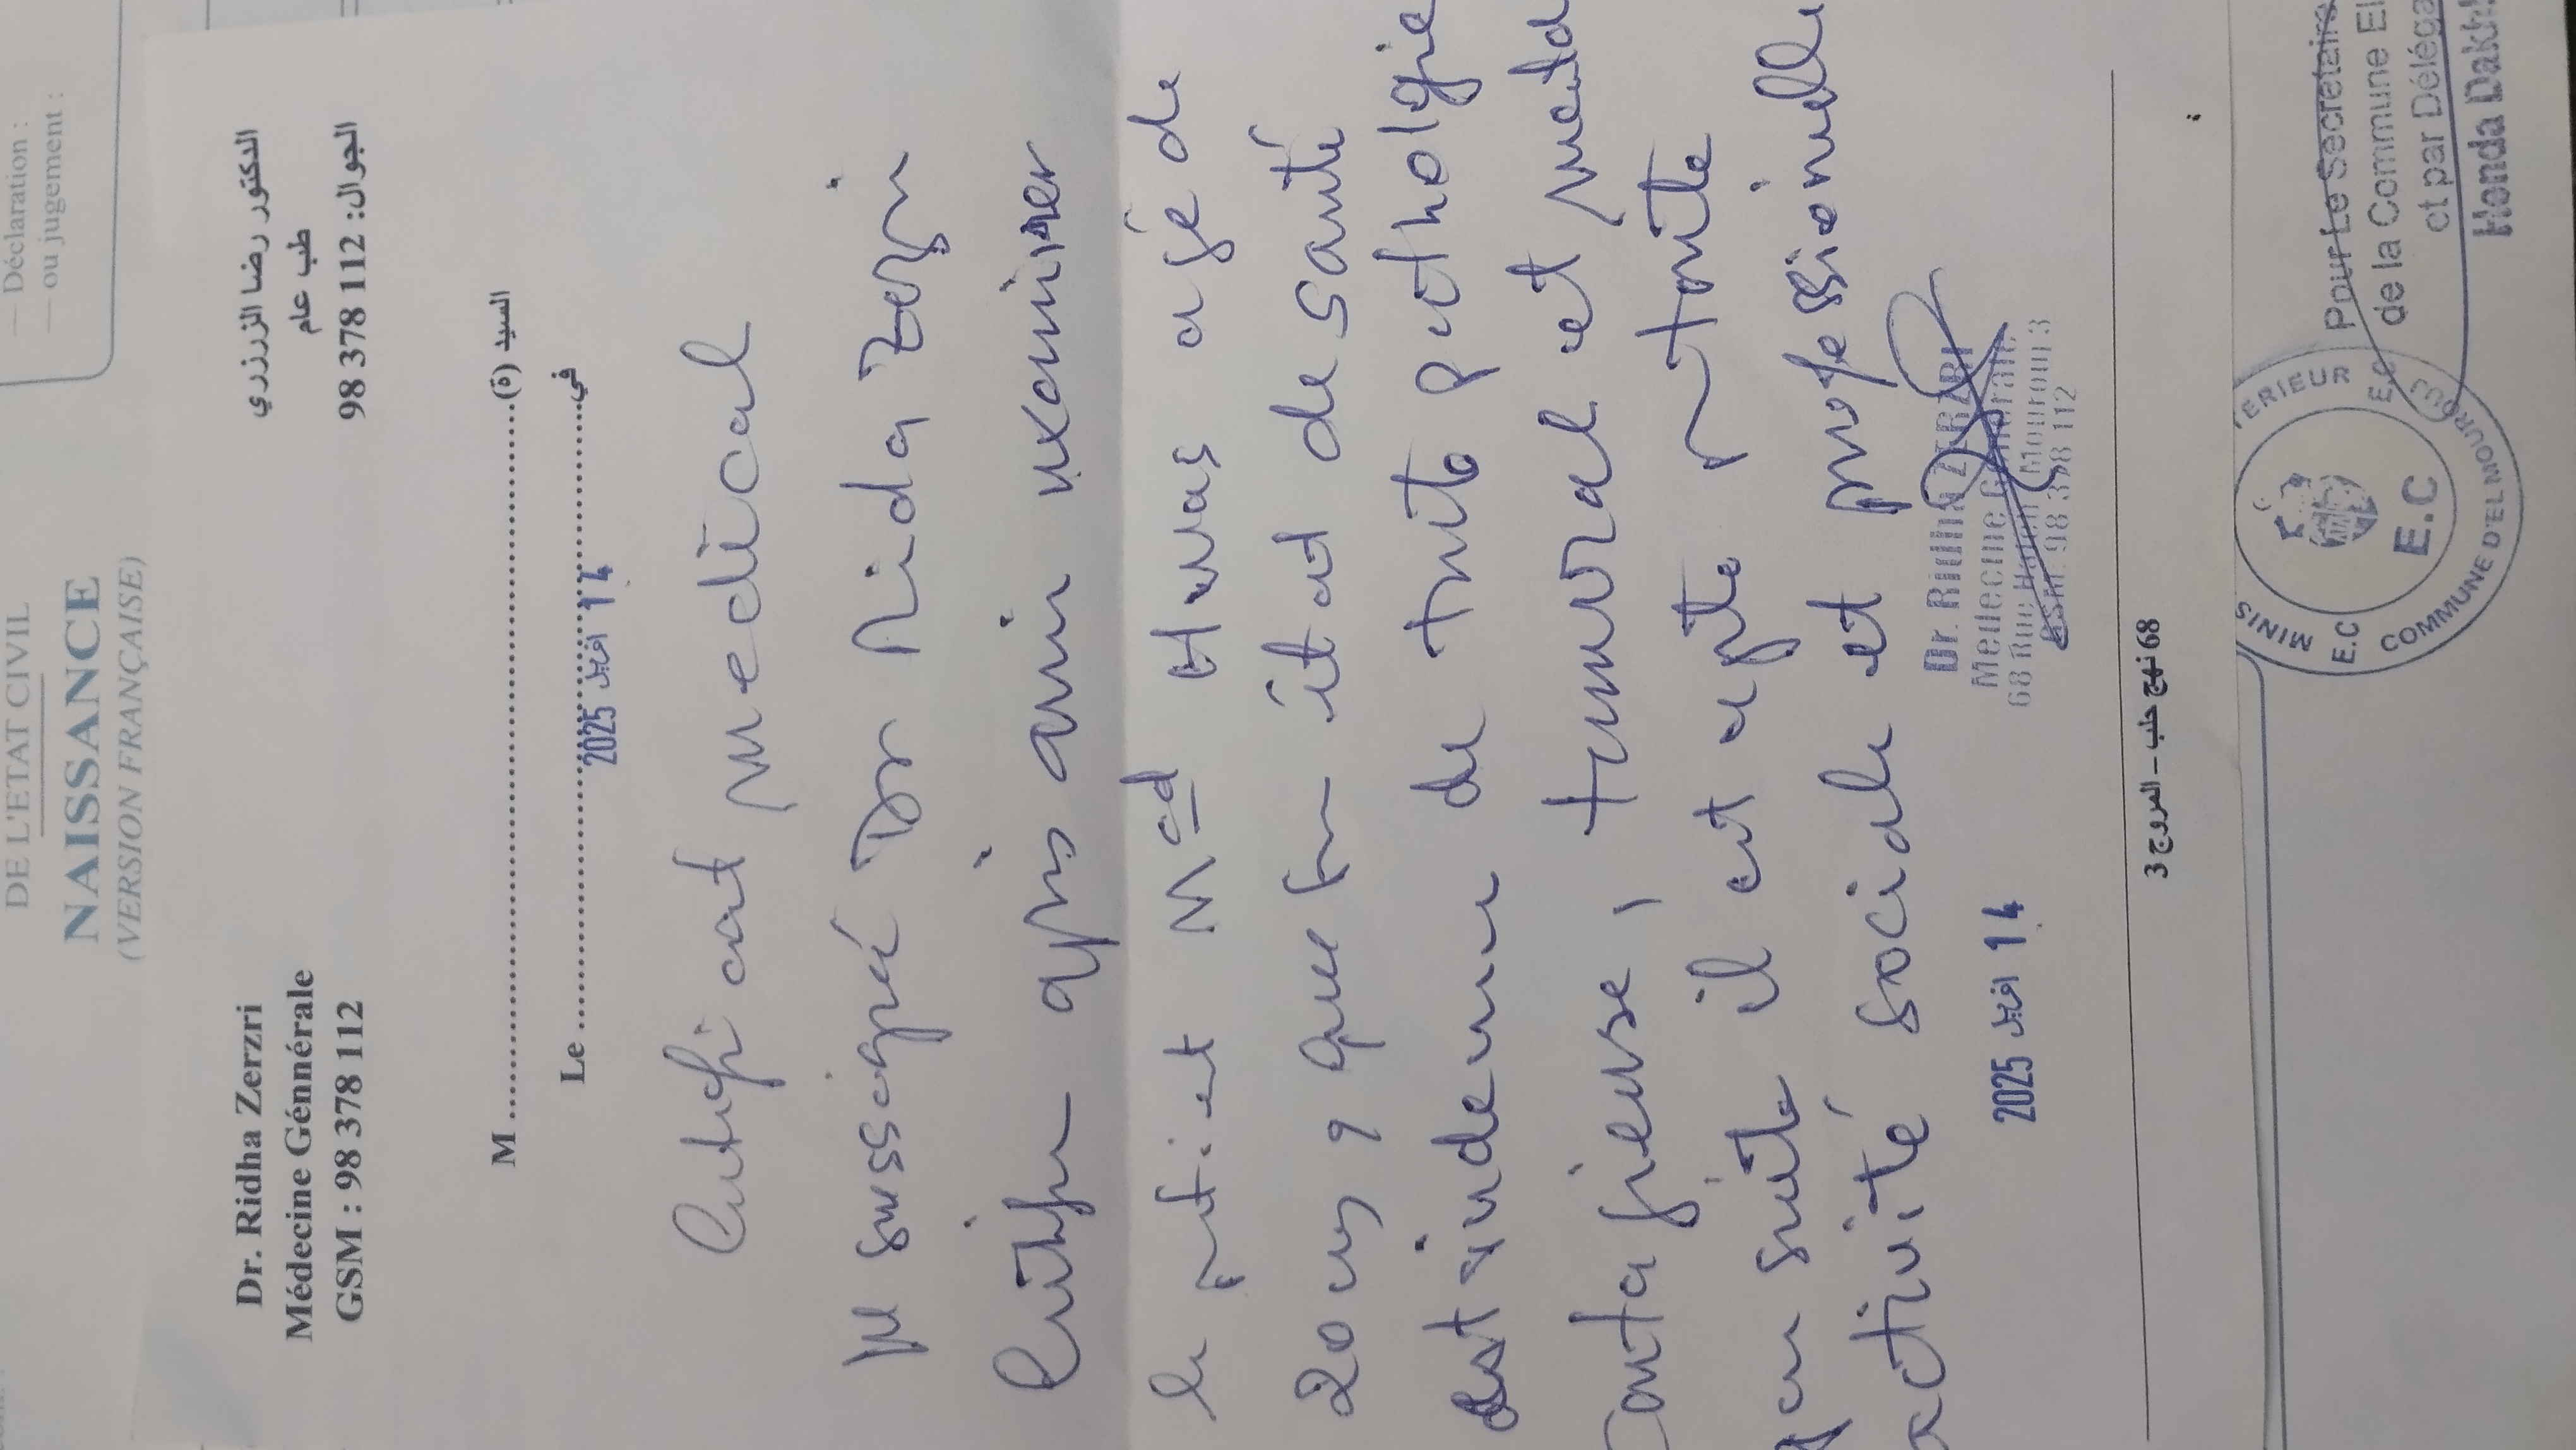 — Déclaration :
— ou jugement :
DE L'ETAT CIVIL
NAISSANCE
(VERSION FRANÇAISE)
Dr. Ridha Zerzri
Médecine Génnérale
GSM : 98 378 112
الدكتور رضا الزرزري
طب عام
الجوال: 112 378 98
M ........................................ السيد (ة)
Le ........................................ في
2025 افريل 14
Certificat medical
Je soussigné Dr Rida Zerzri
Certifie après avoir examiner
le patient Med agé de
20 ans, que son état de santé
est indemne de toute pathologie
contagieuse, tumoral et mental
par suite il est apte a toute
activité sociale et professionnelle
Dr. Ridha ZERZRI
Medecine Générale
68 Rue Mourouj 3
GSM: 98 378 112
2025 افريل 14
68 نهج حلب – المروج 3
MINIS TERIEUR
E.C
E.C
E.C
COMMUNE D'EL MOUROUJ
Pour Le Secretaire
de la Commune El
et par Déléga
Henda Dakh